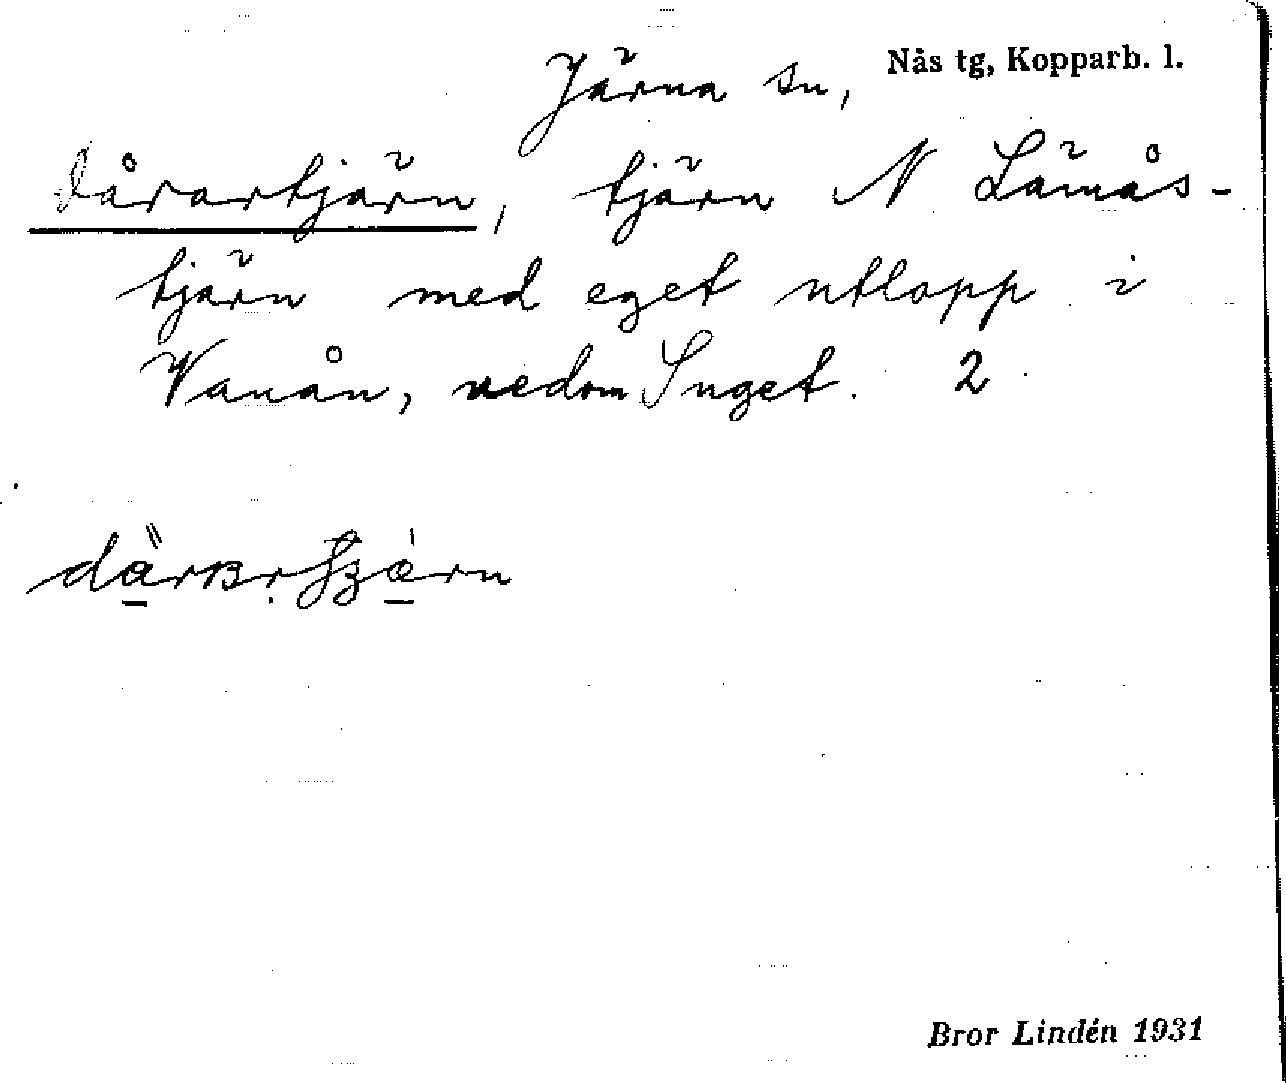 Nås tg, Kopparb. l.
Järna sn,
Dårartjärn, tjärn N Lämås-
tjärn med eget utlopp i
Vanån, nedom Snget. 2
Bror Lindén 1931